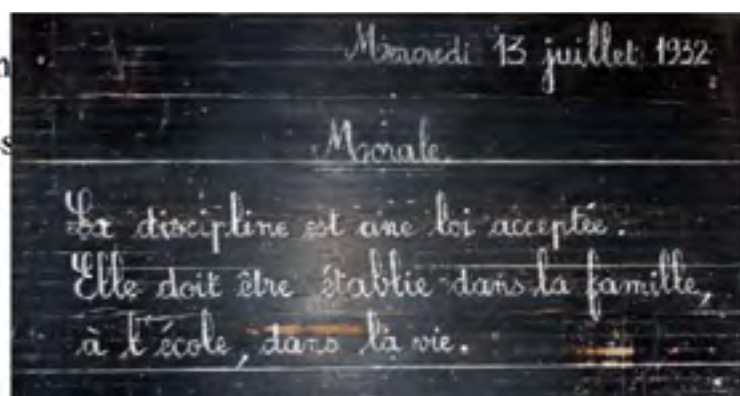 Mercredi 13 juillet 1932
Morale.
La discipline est une loi acceptée.
Elle doit être établie dans la famille,
à l'école, dans la vie.